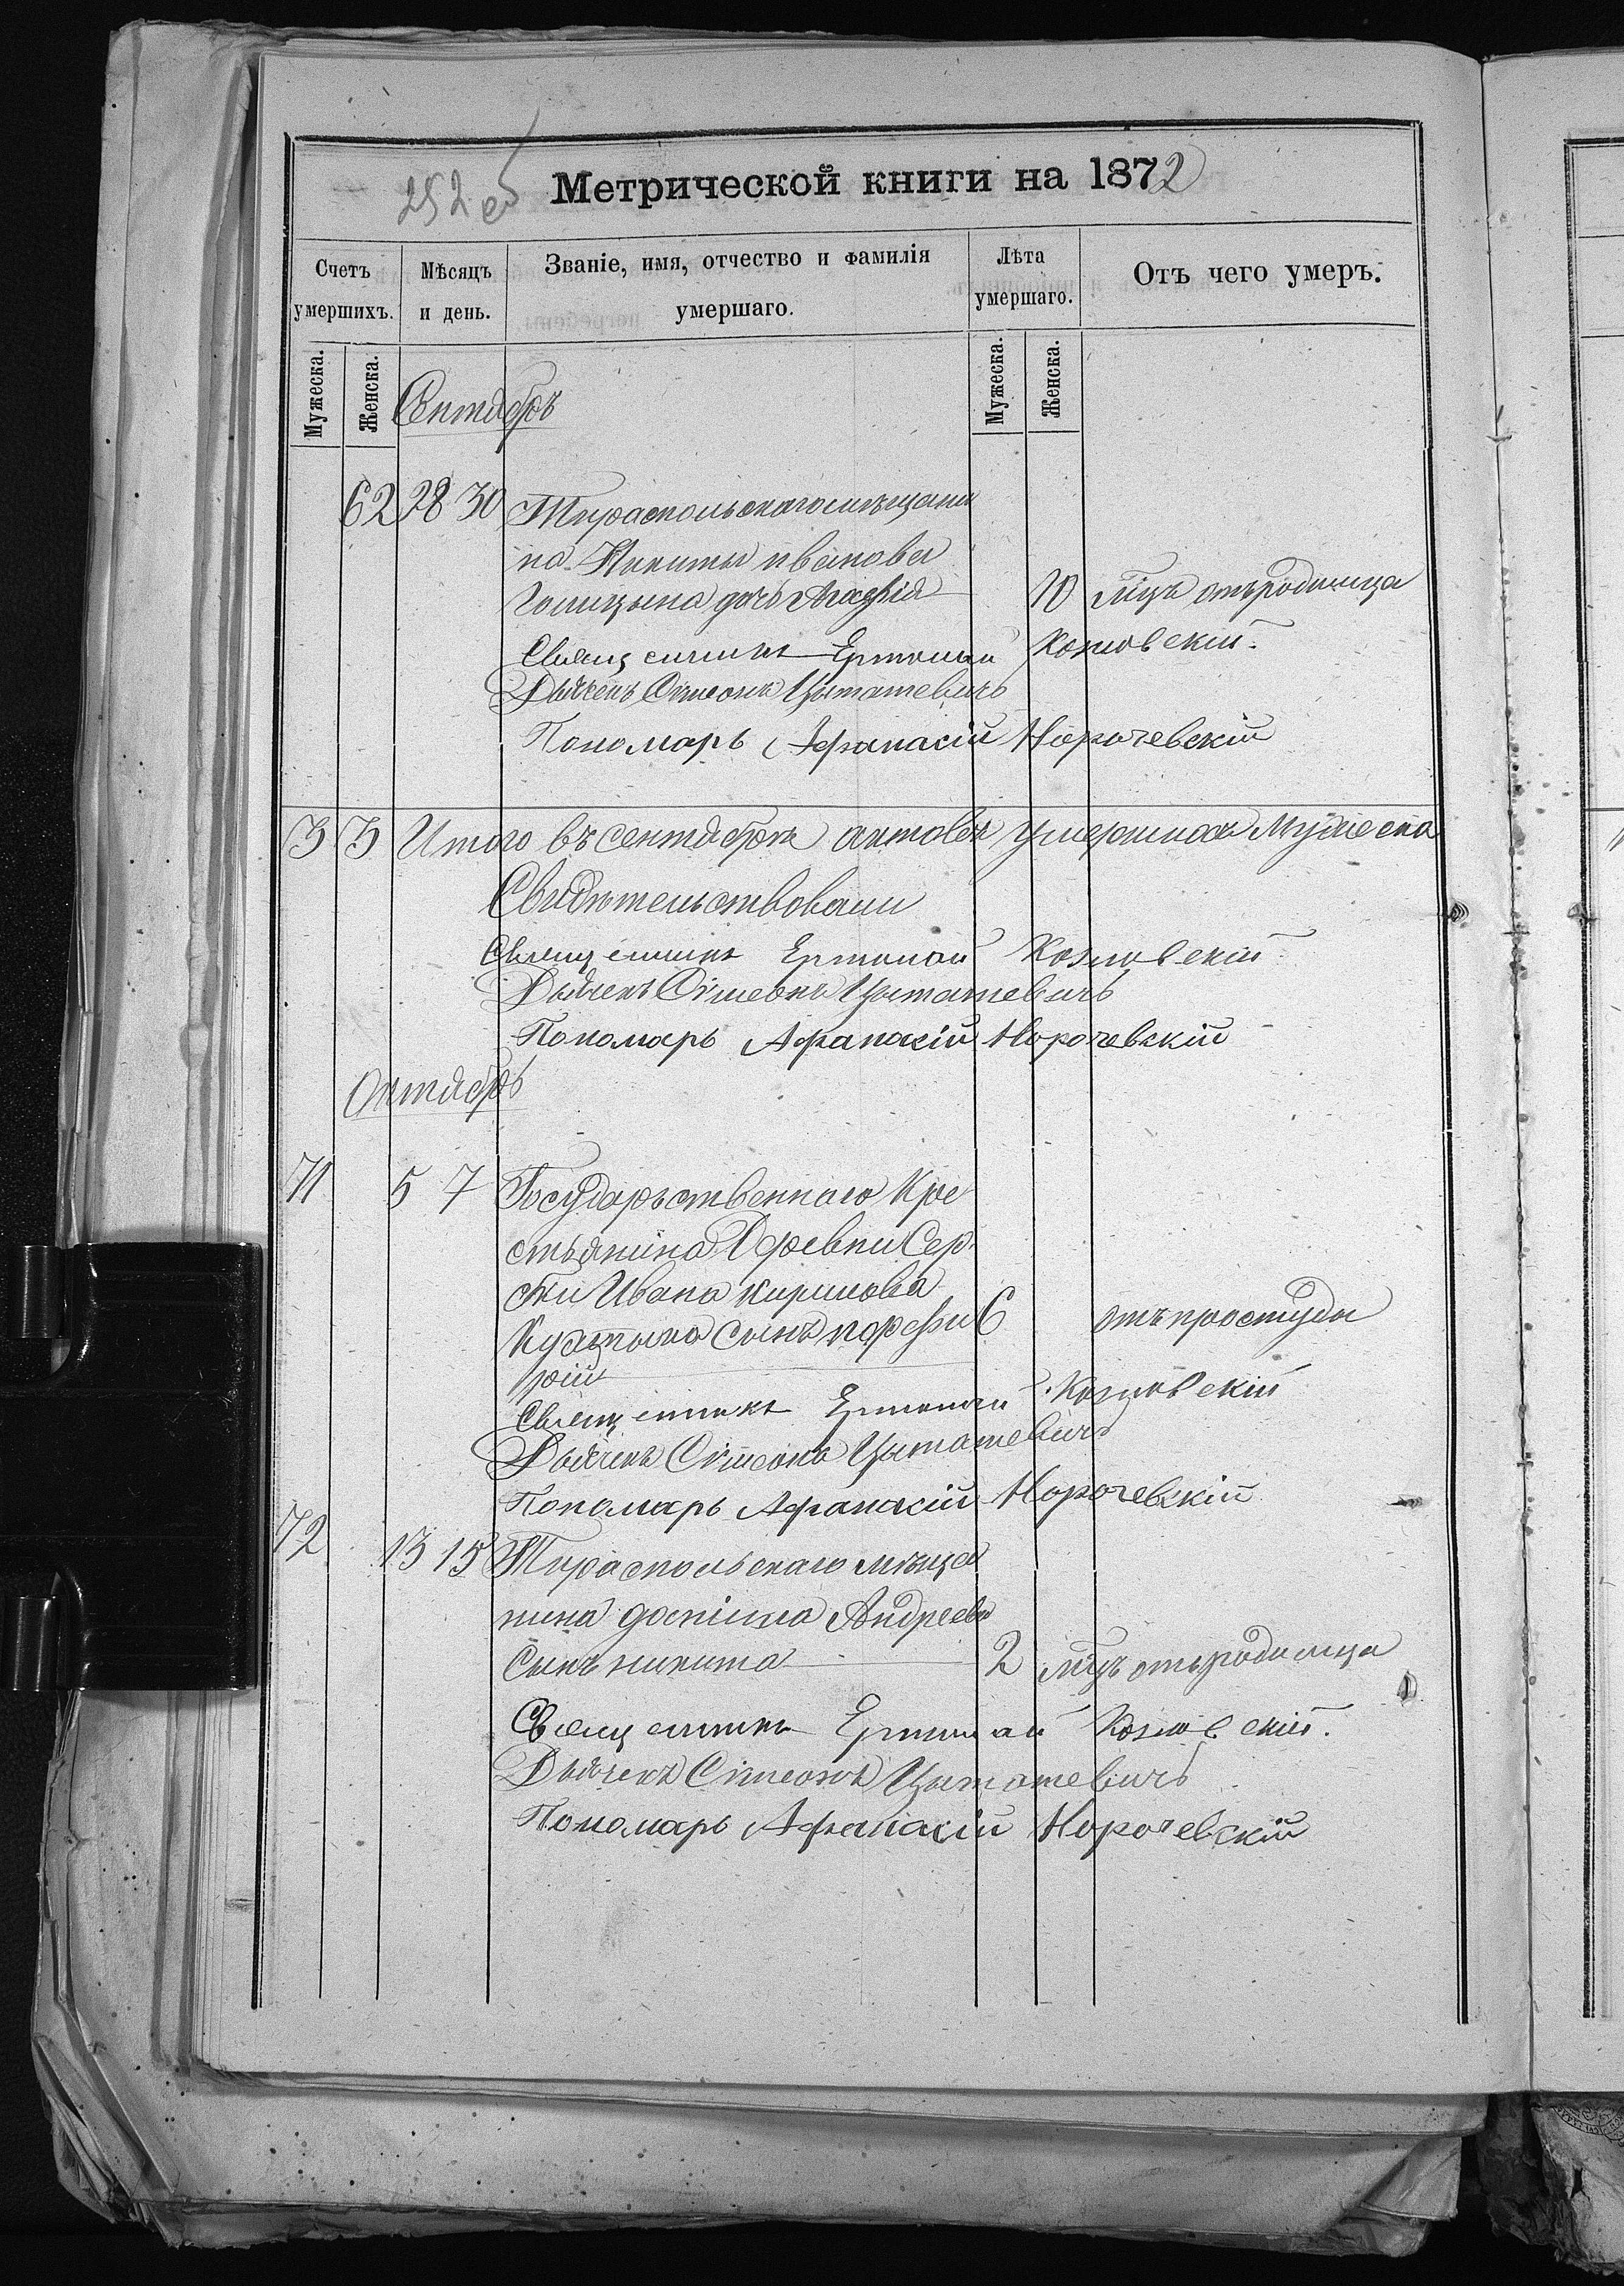 252 об
Метрической книги на 1872
Счетъ умершихъ.
Мѣсяцъ и день.
Званіе, имя, отчество и фамилія умершаго.
Лѣта умершаго.
Отъ чего умеръ.
Мужеска.
Женска.
Мужеска.
Женска.
Сентябрь
62 28 30 Тираспольскаго мѣщани
на Никиты иванова
Голицына дочь Агафія 10 мцъ отъ родимца
Священникъ Ермолай Козловскій.
Дьячекъ Сімеонъ
Пономарь Афанасій Норочевскій
3 3 Итого въ сентябрѣ актовъ умершихъ Мужеска
Свидѣтельствовали
Священникъ Ермолай Козловскій
Дьячекъ Сімеонъ
Пономарь Афанасій Норочевскій
Октябрь
71 5 7 Государьственнаго Кре
стьянина Деревни
Ивана кирилова
сынъ порфи 6 отъ простуды
рій
Священникъ Ермолай Козловскій
Дьячекъ Сімеонъ
Пономарь Афанасій Норочевскій
72 13 15 Тираспольскаго мѣща
нина Андреева
Сынъ никита 2 мцъ отъ родимца
Священникъ Ермолай Козловскій.
Дьячекъ Сімеонъ
Пономарь Афанасій Норочевскій